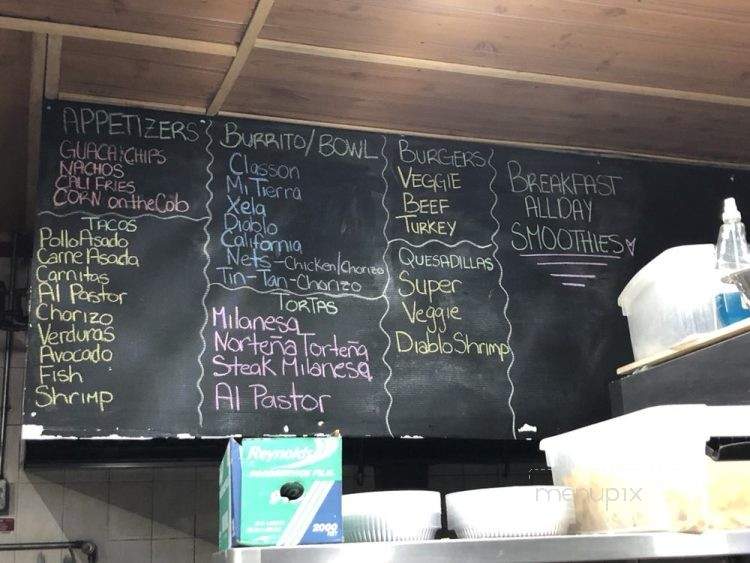 APPETIZERS
GUACA & CHIPS
NACHOS
CALI FRIES
CORN on the Cob
TACOS
Pollo Asado
Carne Asada
Carnitas
Al Pastor
Chorizo
Verduras
Avocado
Fish
Shrimp
BURRITO/BOWL
Classon
Mi Tierra
Xela
Diablo
California
Nets - Chicken/Chorizo
Tin-Tan-Chorizo
TORTAS
Milanesa
Norteña Torteña
Steak Milanesa
Al Pastor
BURGERS
VEGGIE
BEEF
TURKEY
QUESADILLAS
Super
Veggie
Diablo Shrimp
BREAKFAST
ALLDAY
SMOOTHIES
Reynolds
2000
menupix